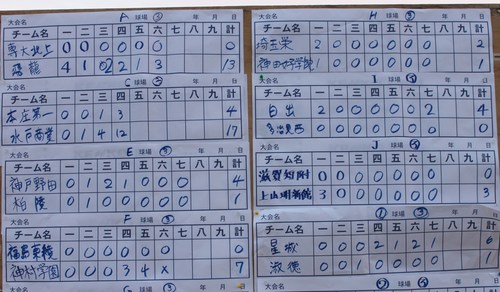 大会名 A 球場 ③ 年 月 日
チーム名 一 二 三 四 五 六 七 八 九 計
専大北上 0 0 0 0 0 0 0
4 1 0 2 2 1 3 13
大会名 C 球場 ③ 年 月 日
チーム名 一 二 三 四 五 六 七 八 九 計
本庄第一 0 0 1 3 4
水戸商業 0 1 4 12 17
大会名 E 球場 ③ 年 月 日
チーム名 一 二 三 四 五 六 七 八 九 計
神戸野田 0 1 2 1 0 0 0 4
柏陵 0 1 0 0 0 0 0 1
大会名 F 球場 ③ 年 月 日
チーム名 一 二 三 四 五 六 七 八 九 計
福島東稜 0 0 0 0 0 0
神村学園 0 0 0 3 4 x 7
大会名 G 球場 ③ 年 月 日
大会名 H 球場 年 月 日
チーム名 一 二 三 四 五 六 七 八 九 計
埼玉栄 2 0 0 0 0 0 0 2
1 0 0 0 0 0 0 1
大会名 I 球場 年 月 日
チーム名 一 二 三 四 五 六 七 八 九 計
日出 2 0 0 0 0 0 2 4
多治見西 0 0 0 0 0 0 0 0
大会名 J 球場 年 月 日
チーム名 一 二 三 四 五 六 七 八 九 計
滋賀短附 0 0 0 0 0 0 0 0
上山明新館 3 0 0 0 0 0 0 3
大会名 球場 ③ 年 月 日
チーム名 一 二 三 四 五 六 七 八 九 計
星城 0 0 0 2 1 2 1 6
淑徳 0 0 1 0 0 0 0 1
大会名 球場 年 月 日